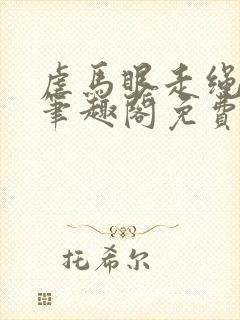 虐马眼走绳
筆趣阁免費
托希尔